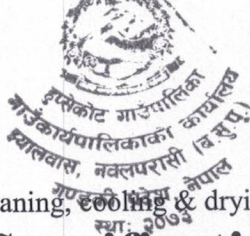 हुप्सेकोट गाउँपालिका
गाउँकार्यपालिकाको कार्यालय
झ्यालवास, नवलपरासी (ब.सु.पू.)
गण्डकी प्रदेश, नेपाल
aning, cooling & dryi
स्था: २०७३